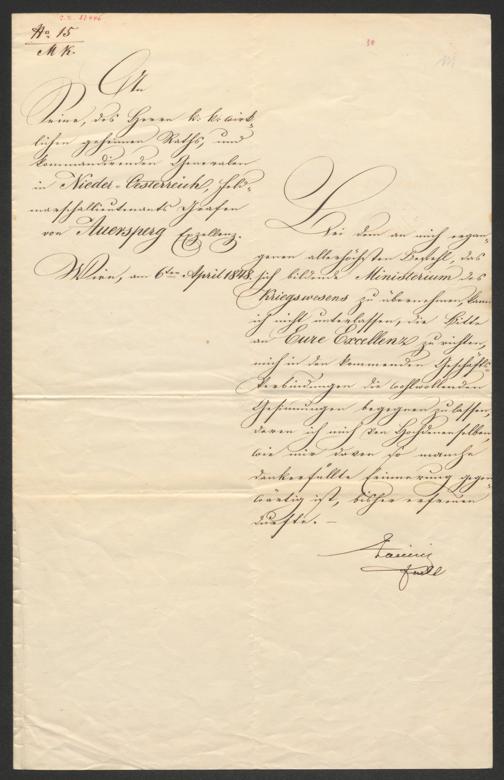 No. 15
M K.
An
Seine, des Herrn k: k: wirk-
lichen geheimen Raths, und
kommandirenden Generalen
in Nieder-Oesterreich, Feld-
marschallieutenants Grafen
von Auersperg Exzellenz.
Wien, am 6ten April 1848.
Bei dem an mich ergan-
genen allerhöchsten Befehl, das
sich bildende Ministerium des
Kriegswesens zu übernehmen, kann
ich nicht unterlassen, die Bitte
an Eure Excellenz zu richten,
mich in den kommenden Geschäfts-
Verbindungen die wohlwollenden
Gesinnungen begegnen zu lassen,
deren ich mich von Hochdenenselben,
wie mir davon so manche
dankerfüllte Erinnerung gegen-
wärtig ist, bisher erfreuen
durfte. —
Zanini